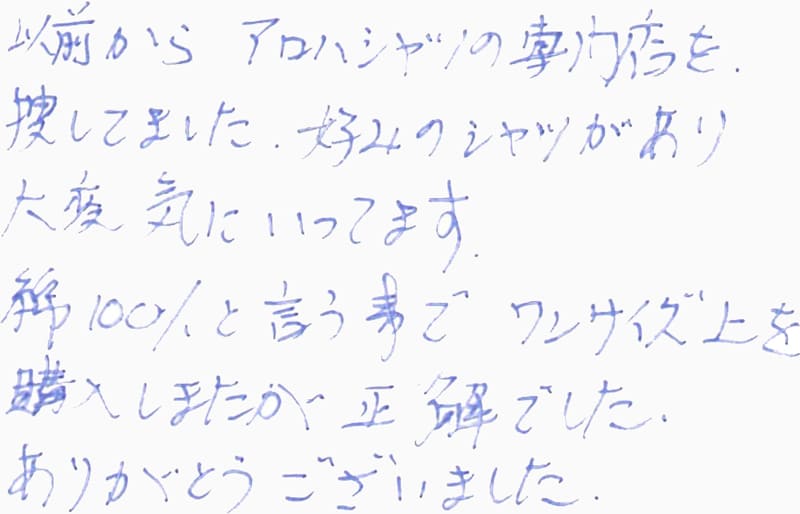 以前から アロハシャツの専門店を.
捜してました. 好みのシャツがあり
大変 気にいってます.
綿100%と言う事で ワンサイズ上を
購入しましたが 正解でした.
ありがとうございました.